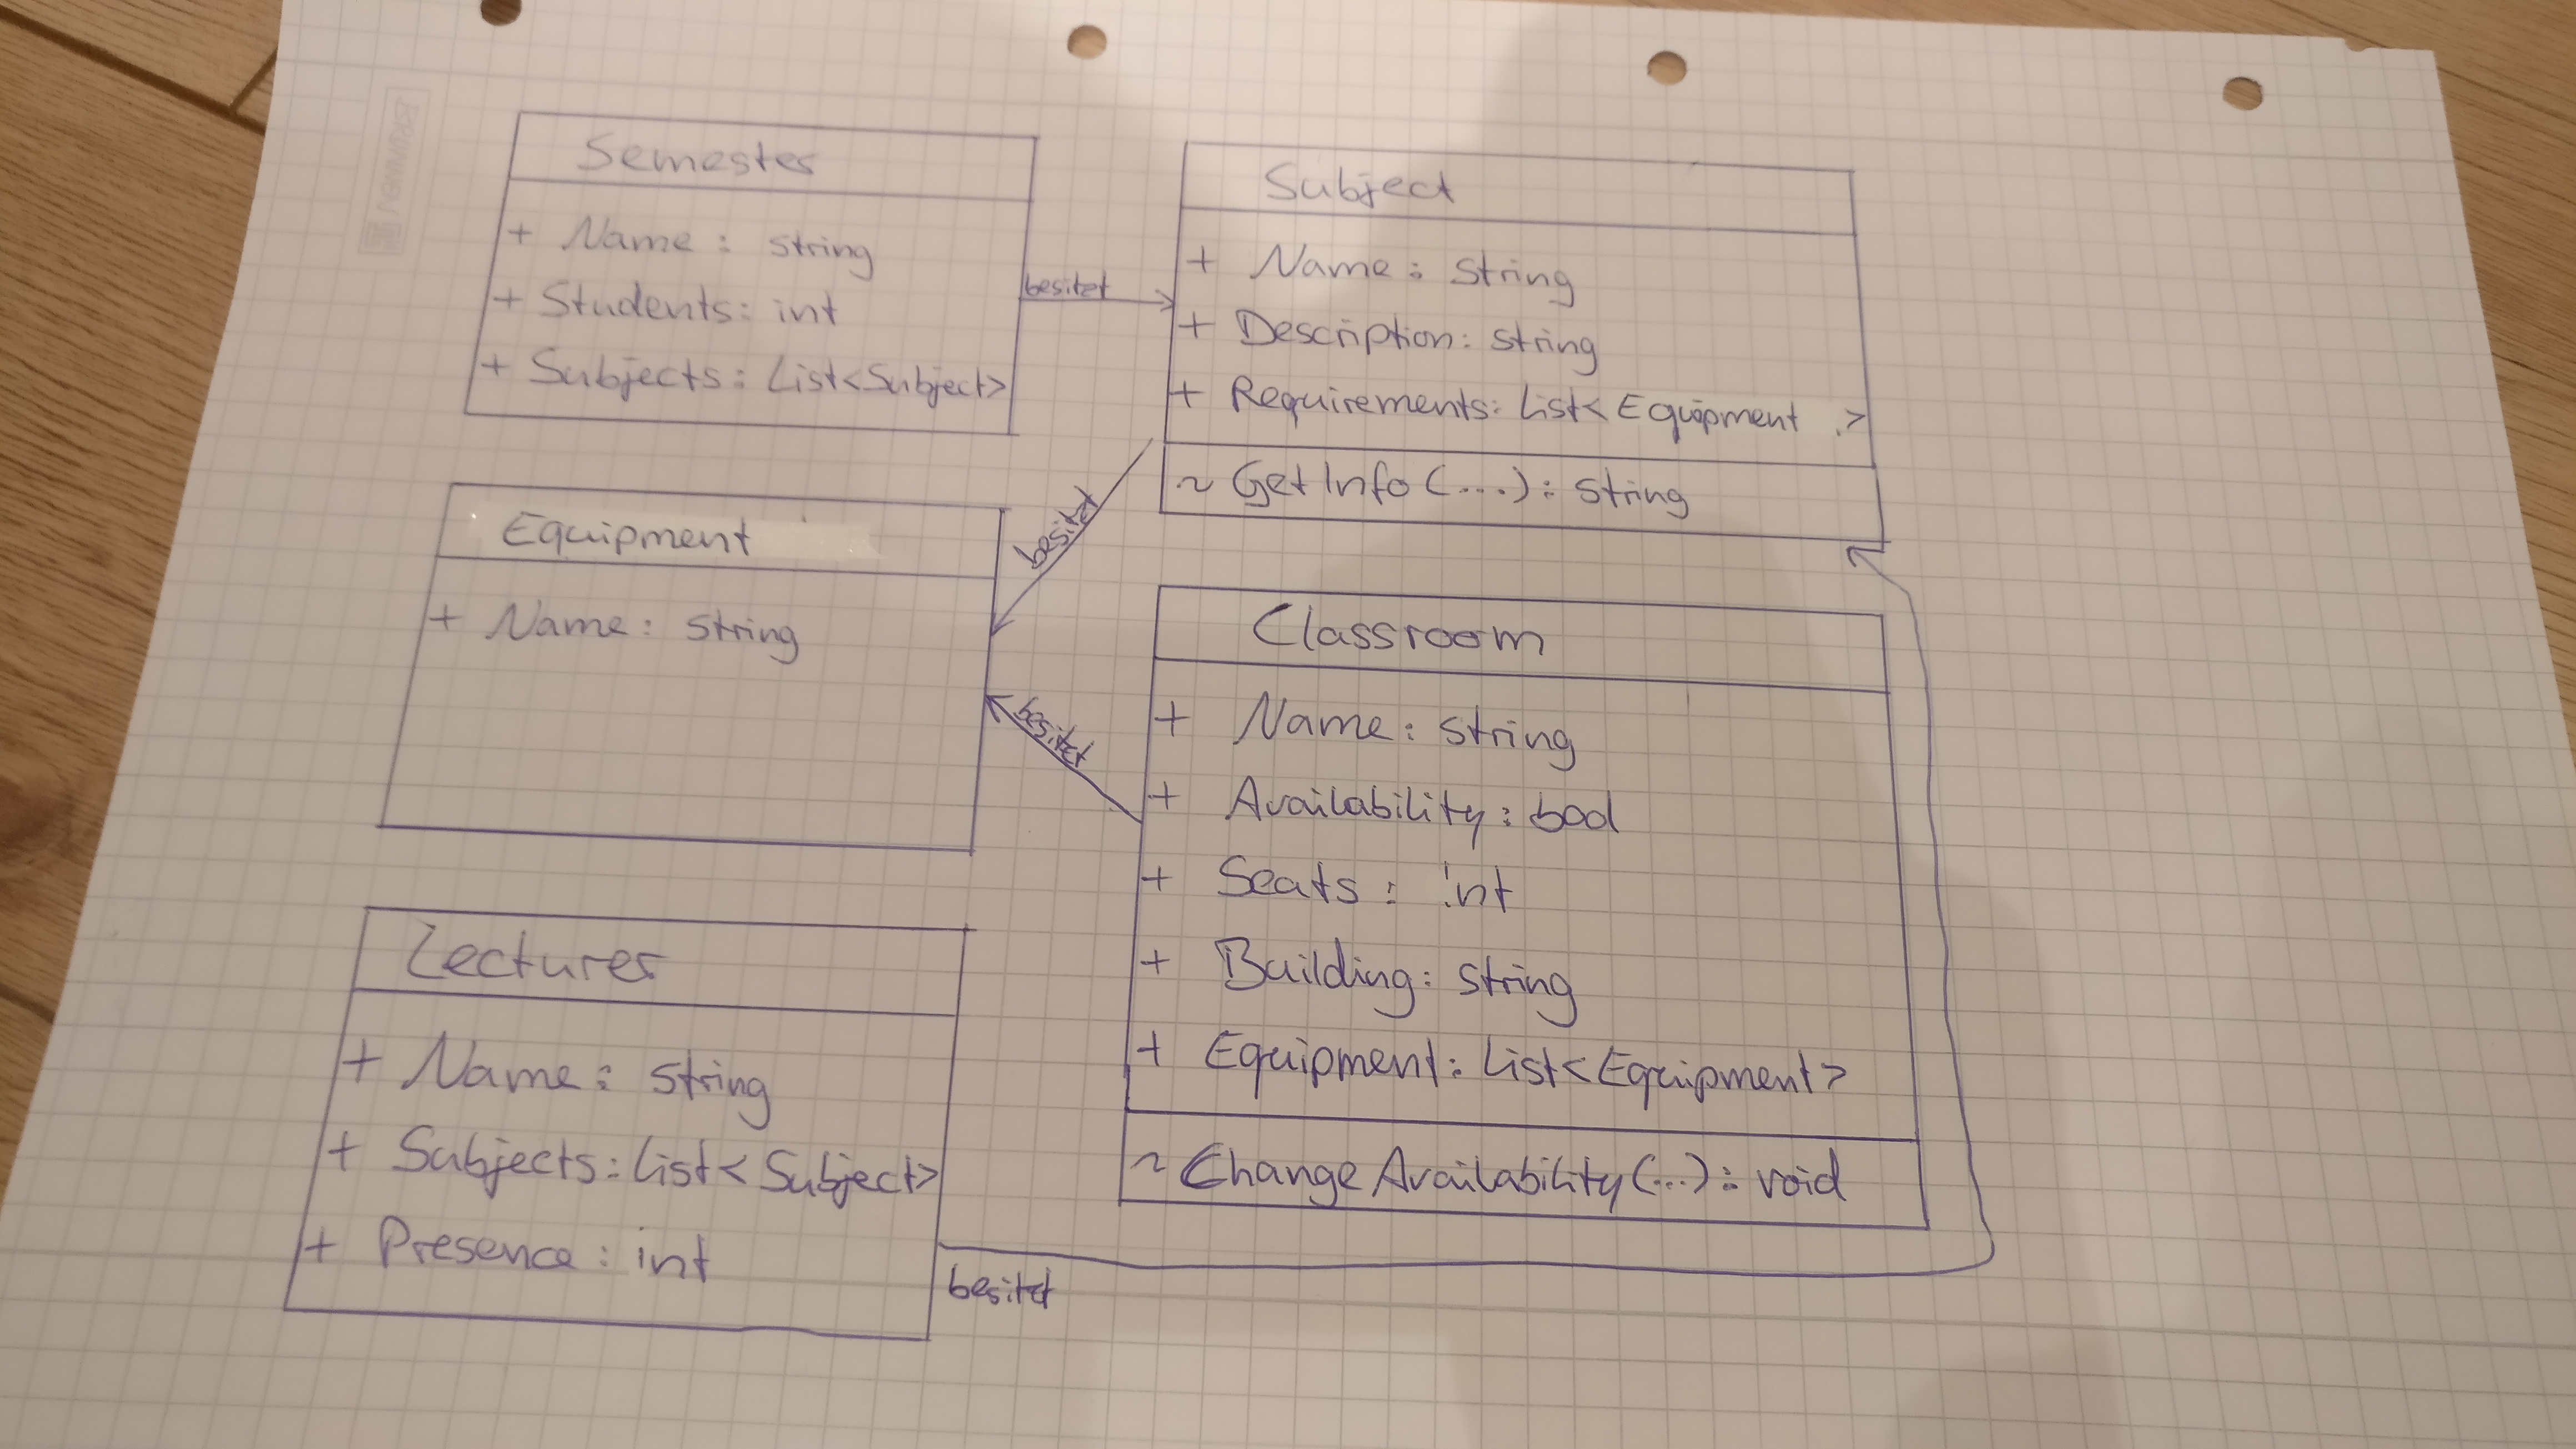 BRUNNEN
Semester
+ Name : string
+ Students: int
+ Subjects: List<Subject>
besitzt
Subject
+ Name : string
+ Description: string
+ Requirements: List<Equipment >
~ GetInfo (....) : string
besitzt
Equipment
+ Name : string
besitzt
Classroom
+ Name : string
+ Availability : bool
+ Seats : int
+ Building : string
+ Equipment: List<Equipment>
~ ChangeAvailability (...) : void
Lecturer
+ Name : string
+ Subjects: List<Subject>
+ Presence : int
besitzt